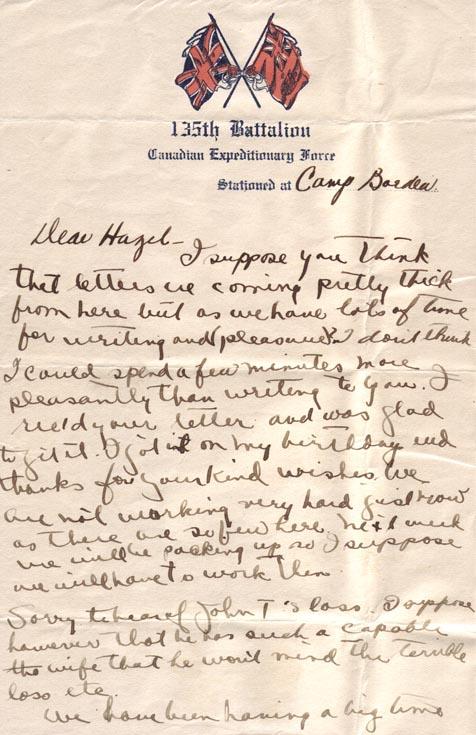 135th Battalion
Canadian Expeditionary Force
Stationed at Camp Borden.
Dear Hazel - I suppose you think
that letters are coming pretty thick
from here but as we have lots of time
for writing and (pleasure?) I don't think
I could spend a few minutes more
pleasantly than writing to you. I
rec'd your letter and was glad
to get it. I got it on my birthday and
thanks for your kind wishes. We
are not working very hard just now
as there are so few here. Next week
we will be packing up so I suppose
we will have to work then.
Sorry to hear of John T's loss. I suppose
however that he has such a capable
wife that he won't mind the terrible
loss etc.
We have been having a big time